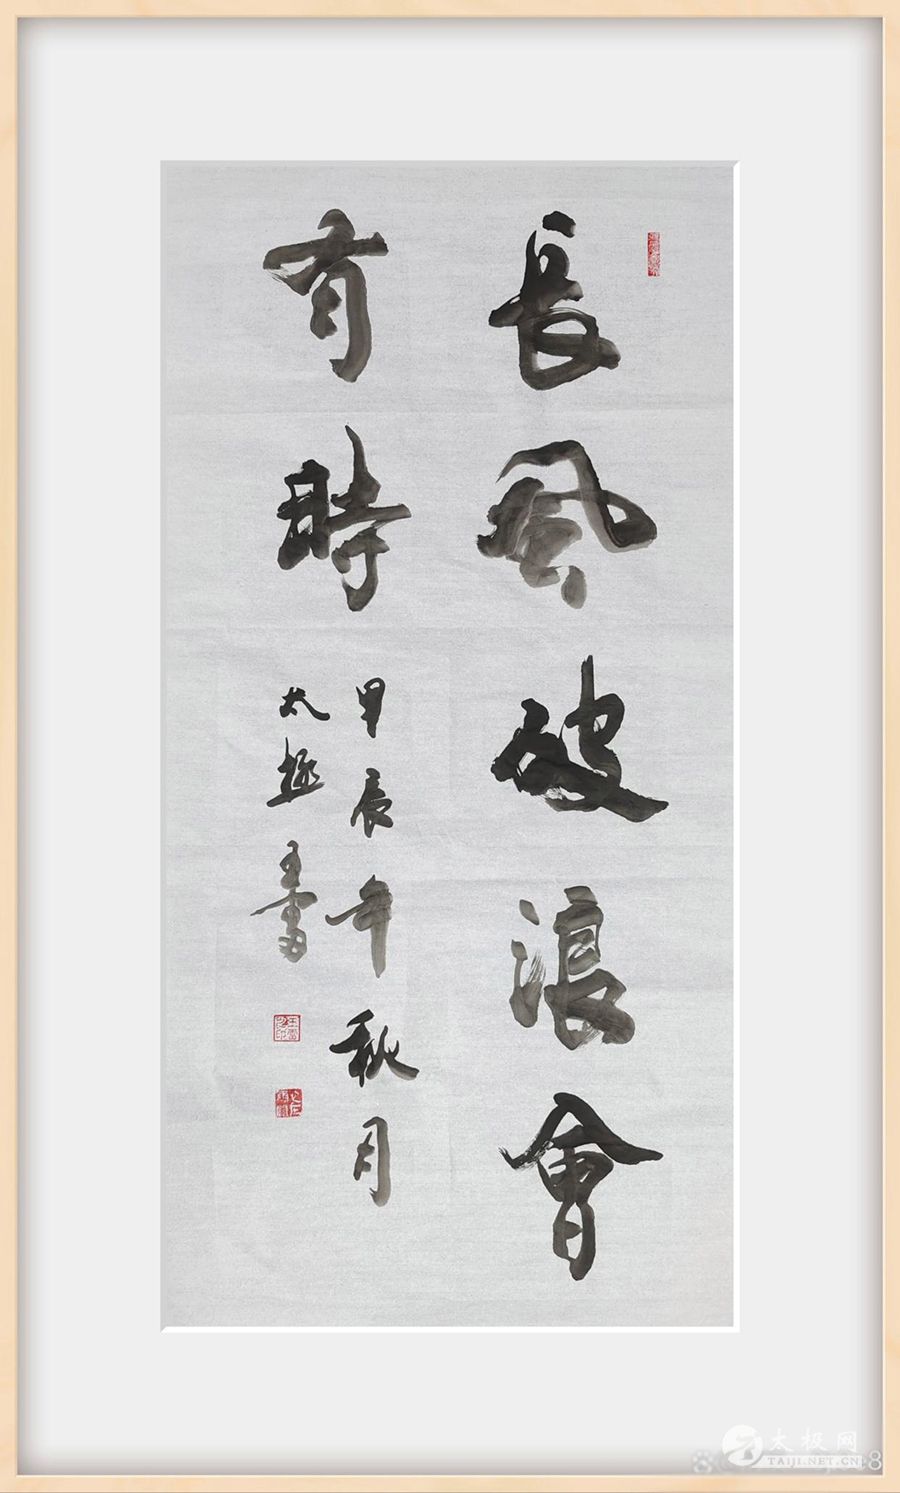 長風破浪會
有時
甲辰年秋月
太極
太极网
TAIJI.NET.CN